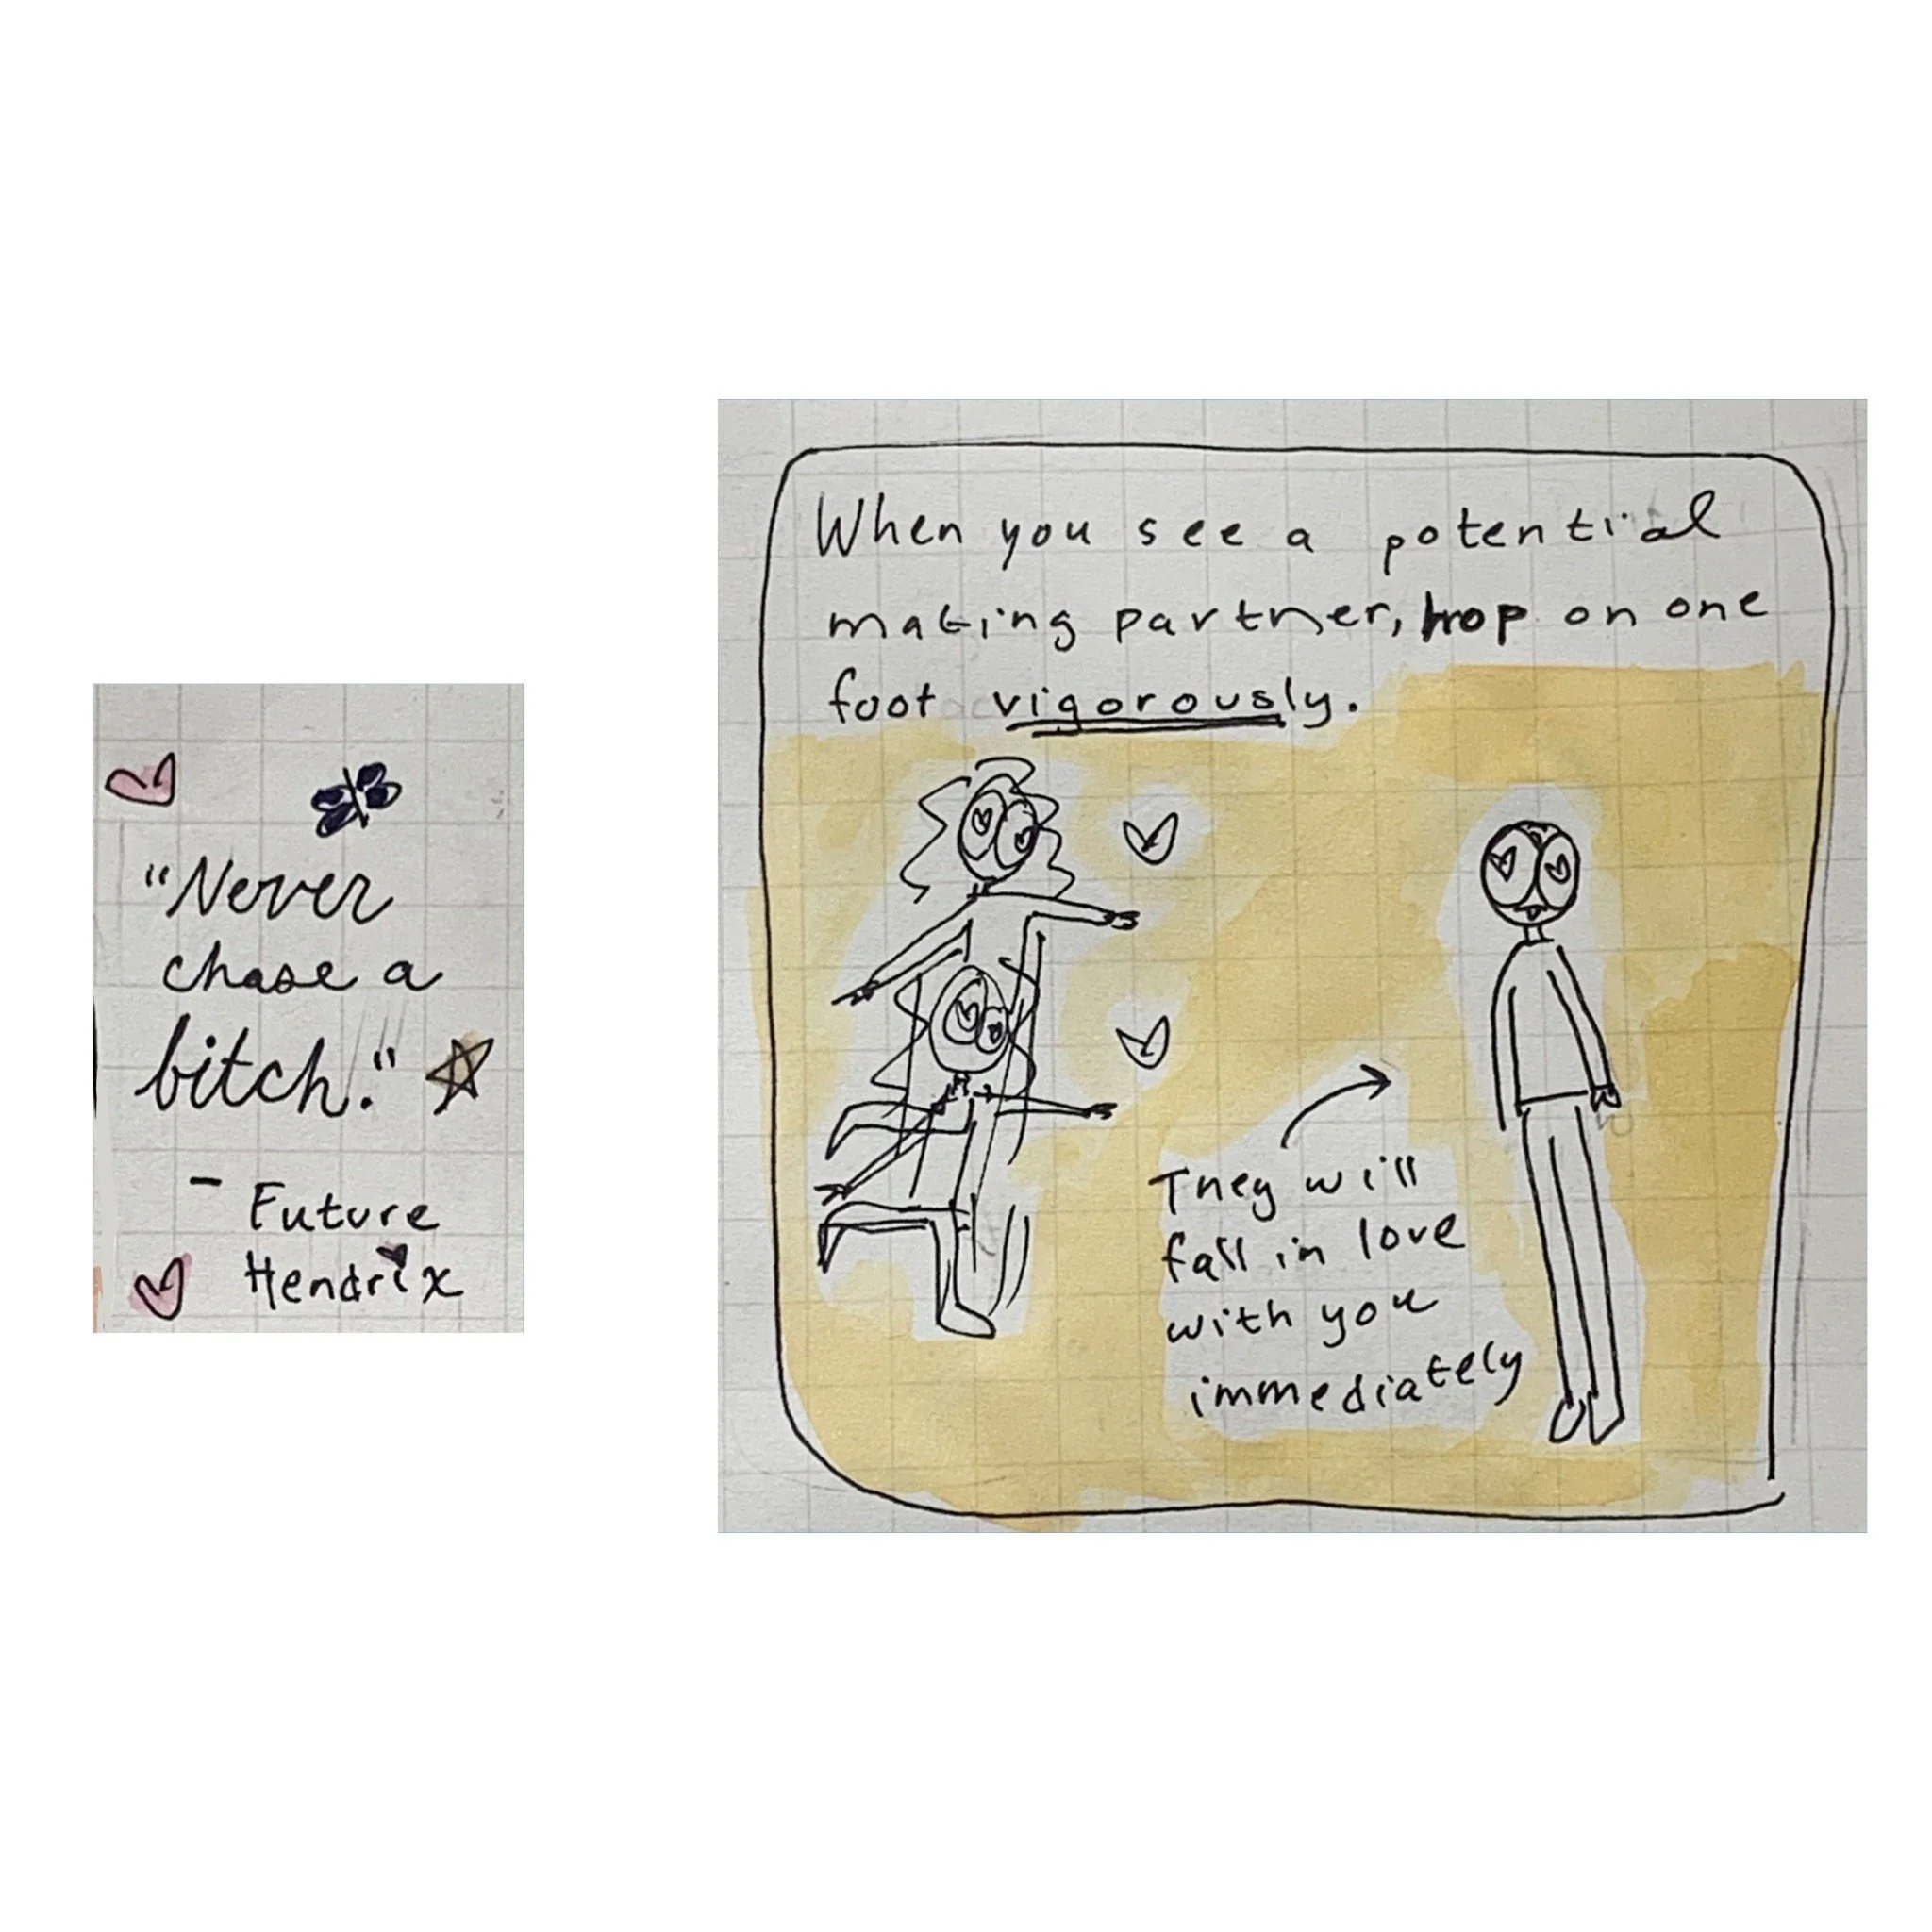 "Never
chase a
bitch."
- Future
Hendrix
When you see a potential
mating partner, hop on one
foot vigorously.
They will
fall in love
with you
immediately